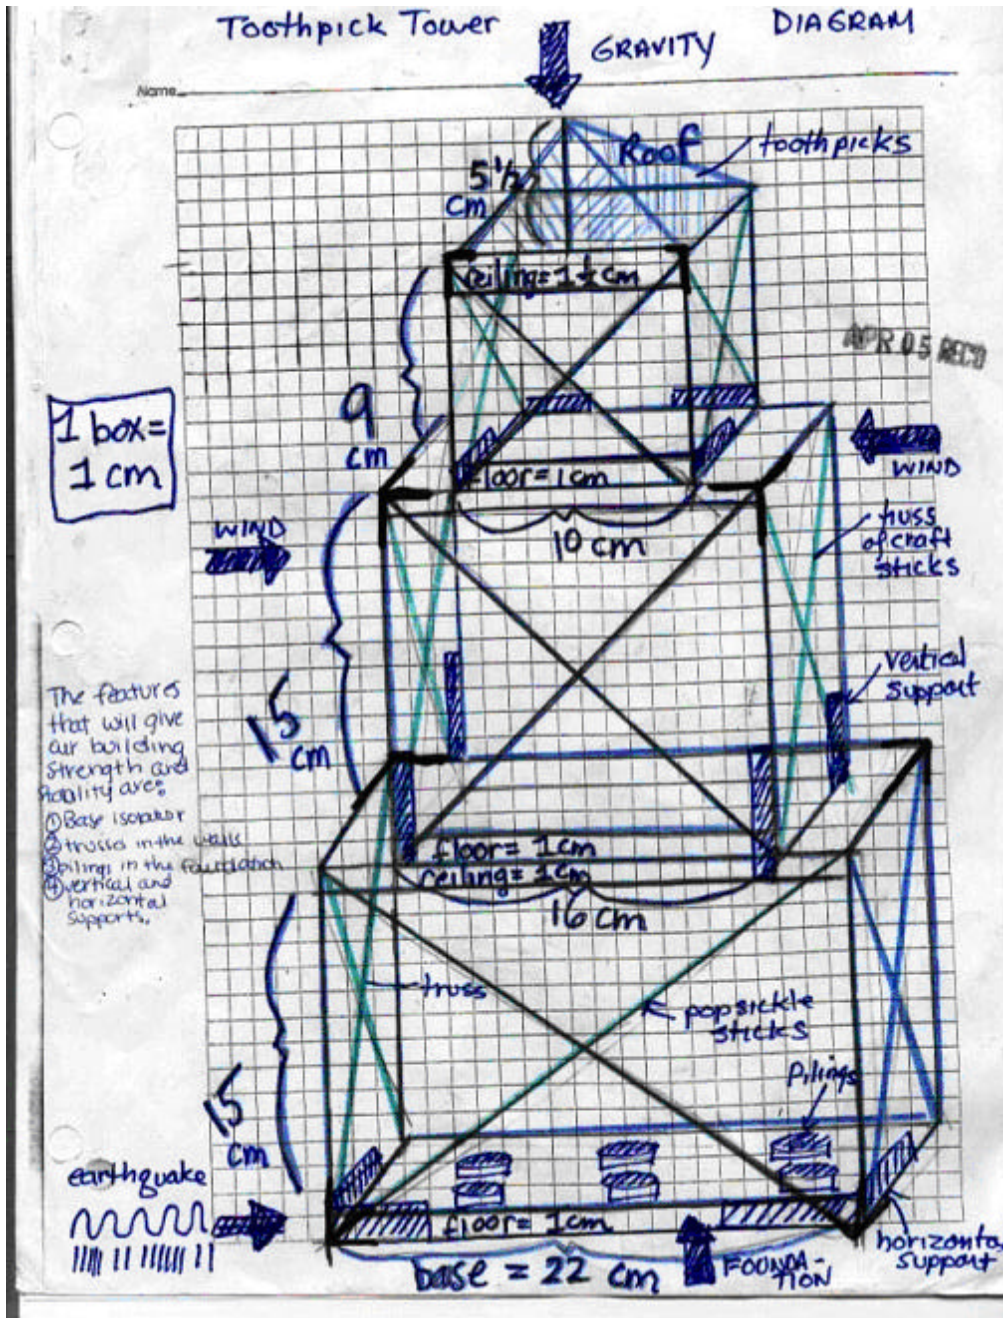 Toothpick Tower
DIAGRAM
GRAVITY
Name
Roof
toothpicks
5 1/2
cm
ceiling = 1 1/2 cm
APR 05 REC'D
9
cm
1 box =
1 cm
WIND
floor = 1cm
WIND
10 cm
truss
of craft
sticks
vertical
support
15
cm
The features
that will give
our building
strength and
① Base isolator
② trusses in the walls
③ pilings in the foundation
④ vertical and
horizontal
supports.
floor = 1cm
ceiling = 1cm
16 cm
truss
popsickle
sticks
Pilings
15
cm
earthquake
floor = 1cm
base = 22 cm
FOUNDA-
TION
horizontal
support